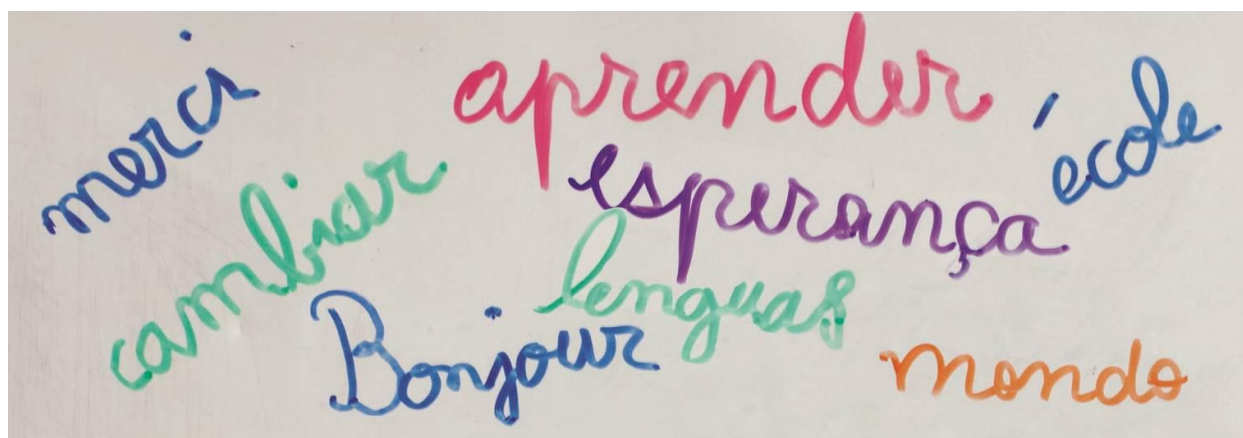 merci
aprender
école
cambiar
esperança
lenguas
Bonjour
mondo